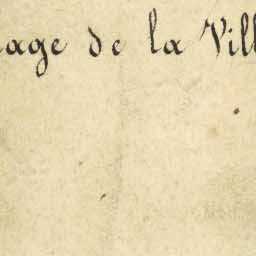 age de la Vill